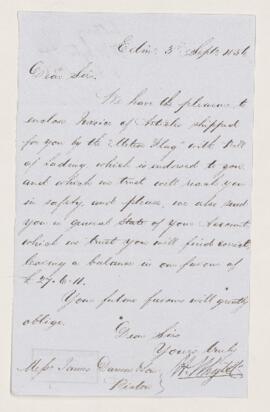 Edinr 3d Septr 1856
Dear Sir.
We have the pleasure to
enclose Invoice of Articles shipped
for you by the "Union Flag" with Bill
of Lading which is indorsed to you
and which we trust will reach you
in safety and please, we also send
you a general State of your Account,
which we trust you will find correct
leaving a balance in our favour of
£ 27. 6. 11.
Your future favours will greatly
oblige.
Dear Sir
Yours truly
Messrs James Dawson & Son
Pictou